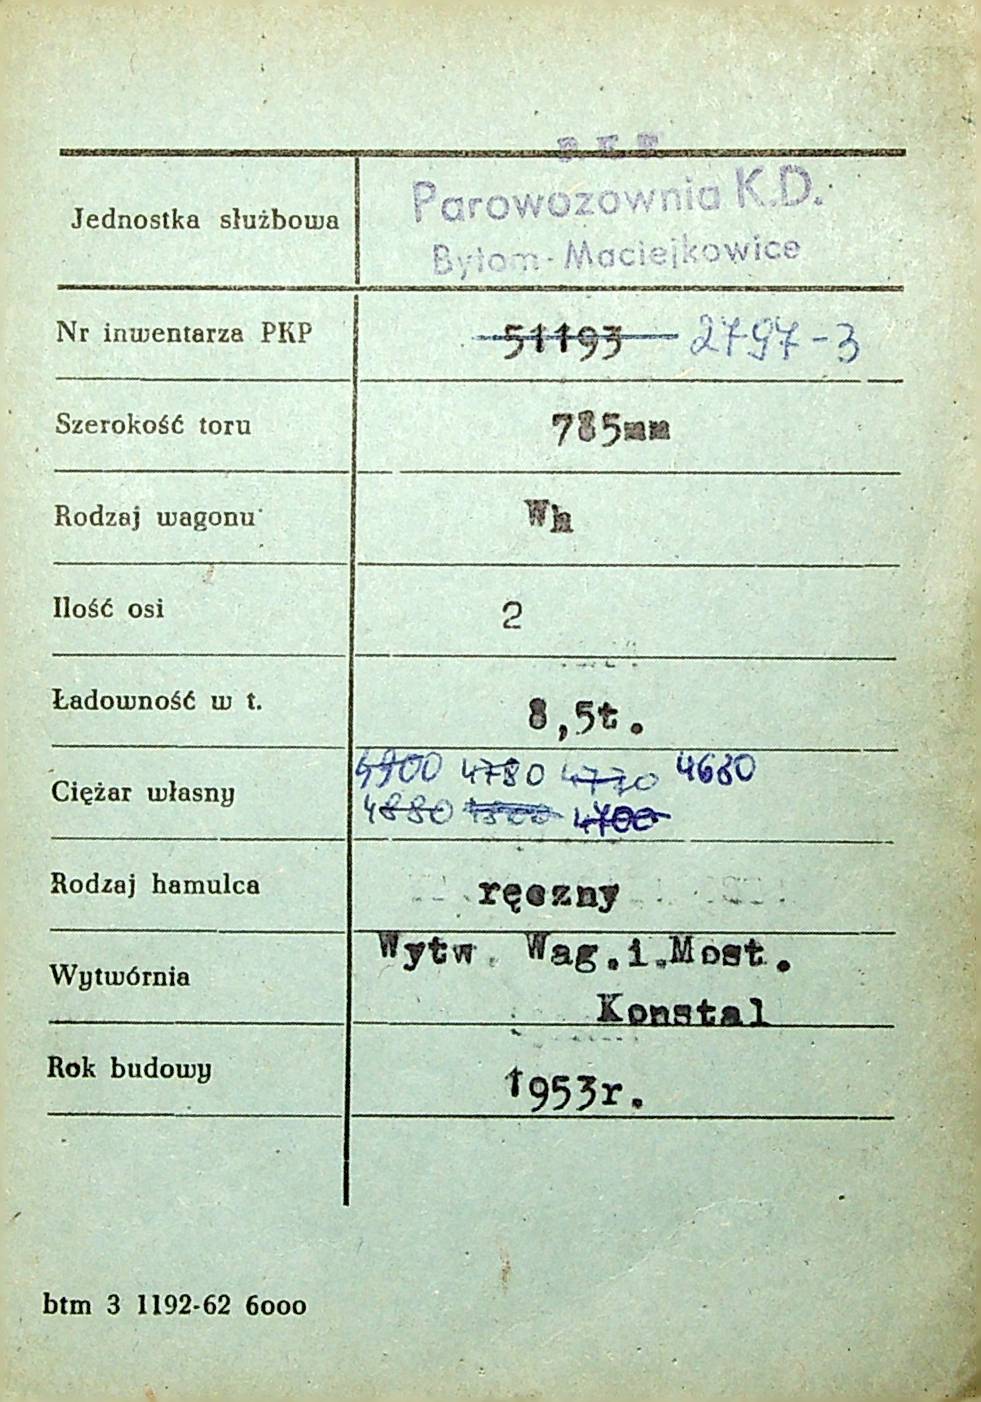 P.K.P.
Parowozownia K.D.
Jednostka służbowa
Bytom-Maciejkowice
Nr inwentarza PKP 51193 2797-3
Szerokość toru 785mm
Rodzaj wagonu Wh
Ilość osi 2
Ładowność w t. 8,5t.
4900 4780 4770 4680
Ciężar własny
4880 4800 4700
Rodzaj hamulca ręczny
Wytw. Wag.i.Most.
Wytwórnia
Konstal
Rok budowy 1953r.
btm 3 1192-62 6000